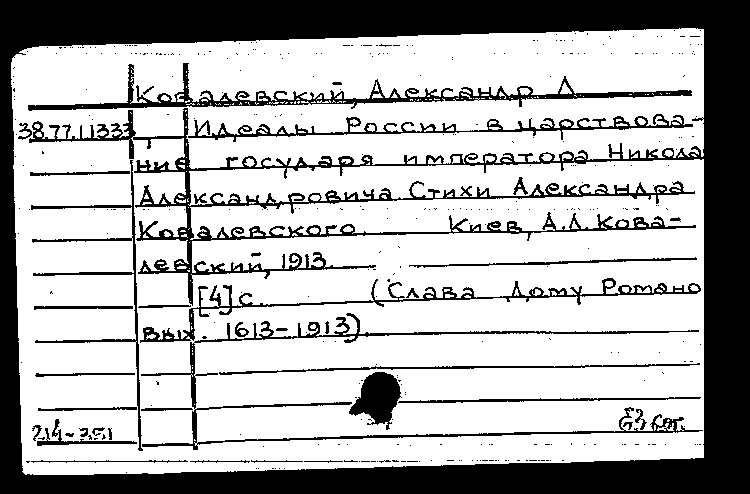 Ковалевский, Александр Л
38.77.11333 Идеалы России в царствова-
ние государя императора Никола
Александровича Стихи Александра
Ковалевского. Киев, А.Л. Кова-
левский, 1913.
[4] с. (Слава Дому Романо
вых. 1613-1913).
214-351